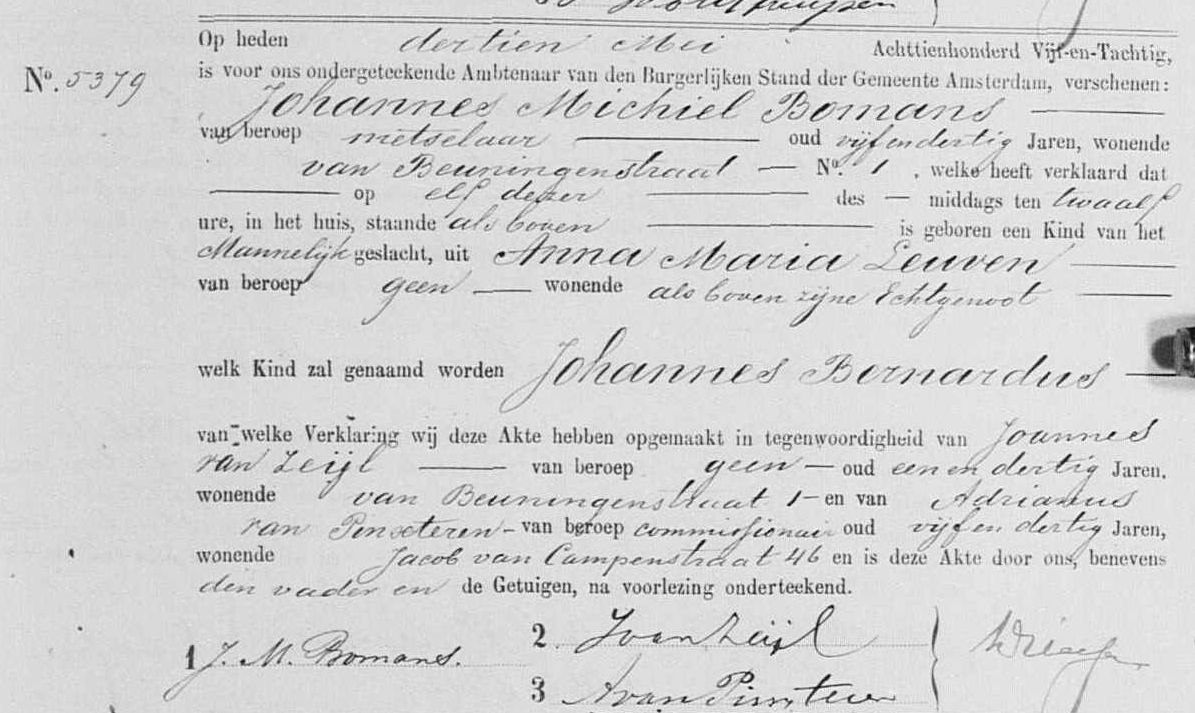 Op heden dertien Mei Achttienhonderd Vijf-en-Tachtig,
No. 5379 is voor ons ondergeteekende Ambtenaar van den Burgerlijken Stand der Gemeente Amsterdam, verschenen:
Johannes Michiel Bomans
van beroep metselaar oud vijfendertig Jaren, wonende
van Beuningenstraat — No. 1, welke heeft verklaard dat
op elf dezer des — middags ten twaalf
ure, in het huis, staande als boven is geboren een Kind van het
Mannelijk geslacht, uit Anna Maria Leuven
van beroep geen — wonende als boven zijne Echtgenoot
welk Kind zal genaamd worden Johannes Bernardus
van welke Verklaring wij deze Akte hebben opgemaakt in tegenwoordigheid van Joannes
van Zeijl — van beroep geen — oud een en dertig Jaren,
wonende van Beuningenstraat 1 — en van Adrianus
van Pinxteren - van beroep commissionair oud vijf en dertig Jaren,
wonende Jacob van Campenstraat 46 en is deze Akte door ons, benevens
den vader en de Getuigen, na voorlezing onderteekend.
1 J. M. Bomans.
2 J van Zeijl
3 A van Pinxteren